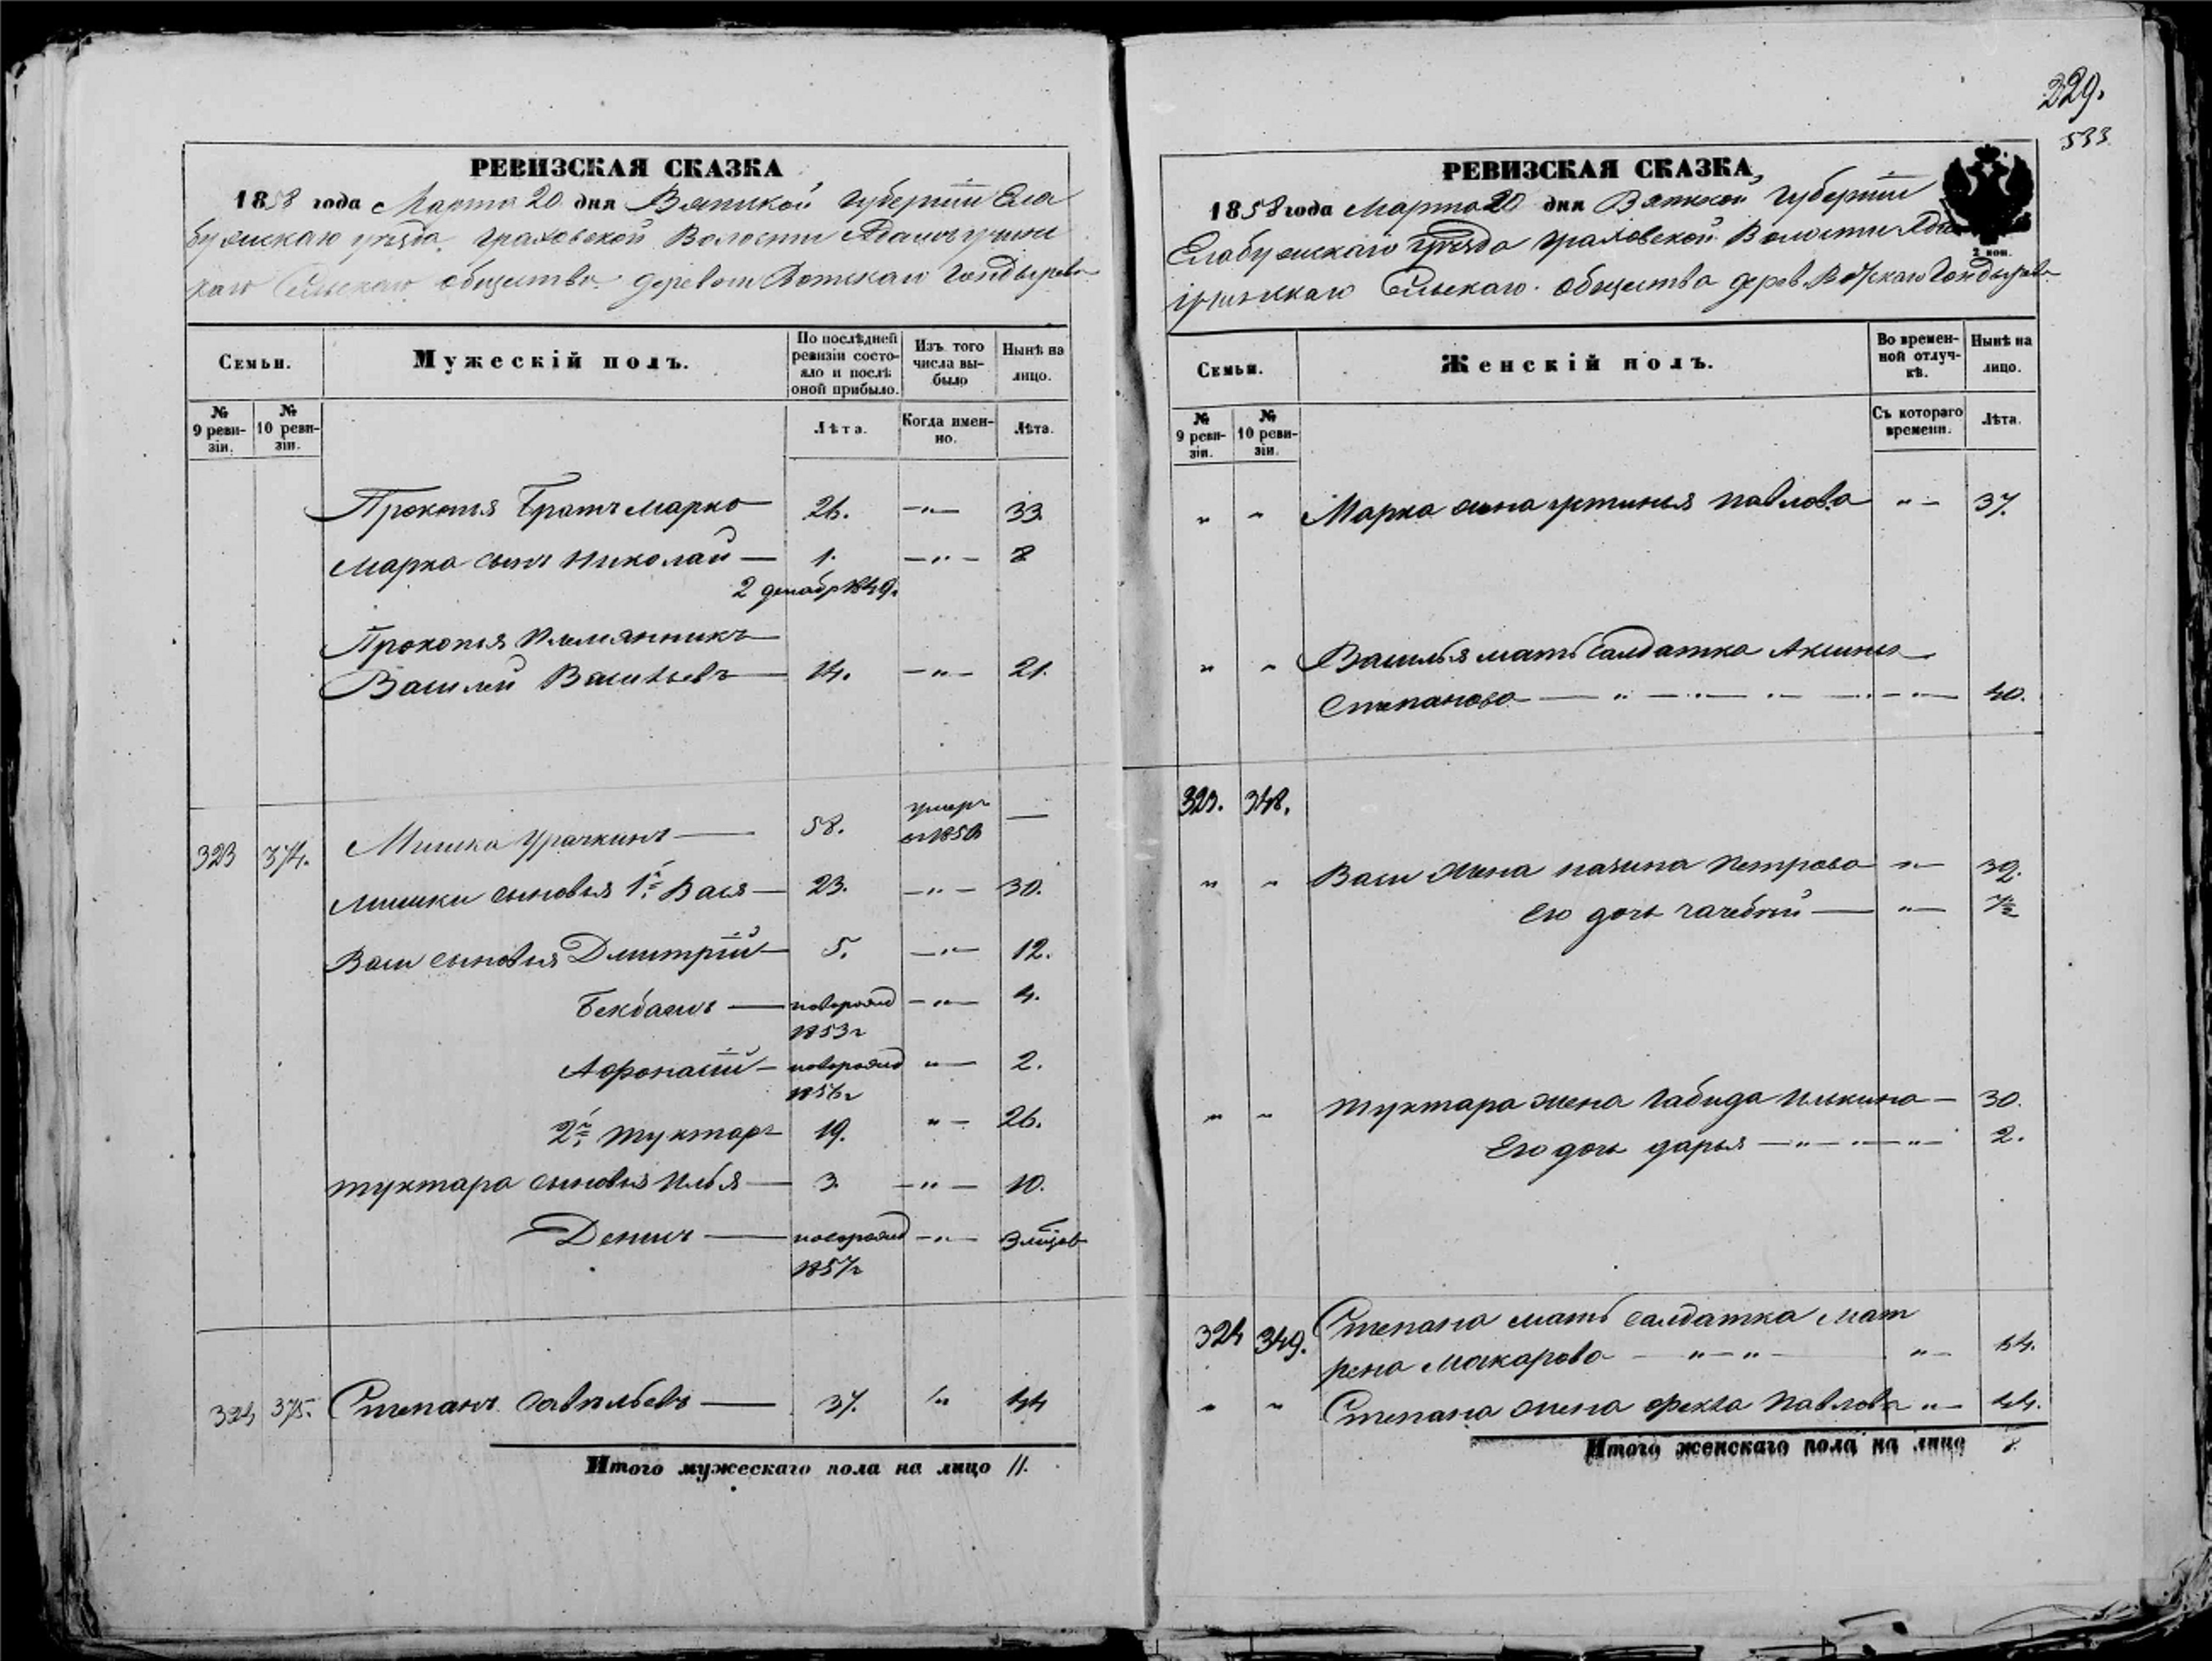 РЕВИЗСКАЯ СКАЗКА
1858 года Марта 20 дня Вятской Губерніи Ела
бужскаго уѣзда Граховской Волости
Сельскаго общества деревни Вотскаго Гондырева
Семьи.
Мужескій полъ.
По послѣдней ревизіи состояло и послѣ оной прибыло.
Изъ того числа выбыло
Нынѣ на лицо.
№ 9 ревизіи.
№ 10 ревизіи.
Лѣта.
Когда именно.
Лѣта.
Прокопья Братъ Марко — 26. —"— 33.
Марка сынъ Николай — 1. —"— 8
2 декабр 1849.
Прокопья Племянникъ —
Василей Васильевъ — 14. —"— 21.
323 374. Мишка Урачкинъ — 58. умеръ —
в 1850
Мишки сыновья 1й Вася — 23. —"— 30.
Васи сыновья Дмитрій — 5. —"— 12.
Бекбашъ — новорожд —"— 4.
1853г
Афонасій — новорожд "— 2.
1856г
2й Туктаръ 19. "— 26.
Туктара сыновья Илья — 3. —"— 10.
Денисъ — новорожд —"— 3 мѣсяц
1857г
324 375. Степанъ Савельевъ — 37. "— 44
Итого мужескаго пола на лицо 11.
229.
533
РЕВИЗСКАЯ СКАЗКА,
1858 года Марта 20 дня Вятской Губерніи
Елабужскаго Уѣзда Граховской Волости
Сельскаго Общества дерев. Вотскаго Гондырева
2 коп.
Семьи.
Женскій полъ.
Во временной отлучкѣ.
Нынѣ на лицо.
№ 9 ревизіи.
№ 10 ревизіи.
Съ котораго времени.
Лѣта.
" " Марка жена Устинья Павлова "— 37.
" " Василья мать Солдатка Аксинья
Степанова — " — " — " — " — " — 40.
323. 348.
" " Васи жена Петрова "— 39.
Его дочь — "—
" " Туктара жена Габида Илкина — 30.
Его дочь Дарья —"—"—"— 2.
324 349. Степана мать солдатка Мат
рена Макарова — "—"— "— 64.
" " Степана жена Фекла Павлова "— 44.
Итого женскаго пола на лицо 8.